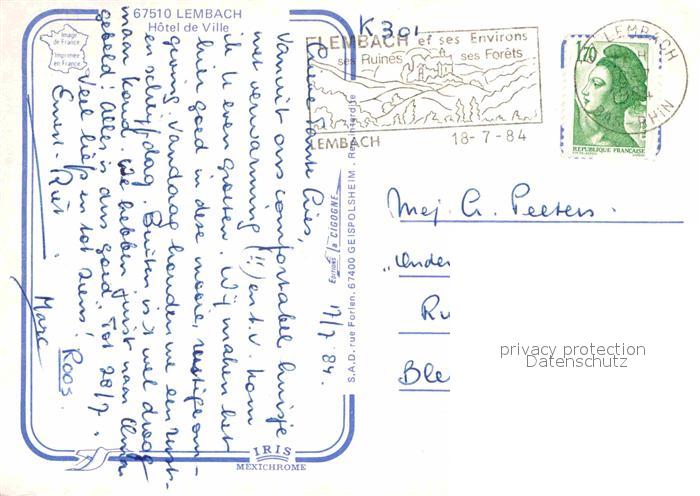 67510 LEMBACH
Hôtel de Ville
Image
de France
Imprimée
en France
K301
LEMBACH et ses Environs
ses Ruines
ses Forêts
LEMBACH
18-7-84
LEMBACH
BAS-RHIN
1,70
REPUBLIQUE FRANÇAISE
17/7/84.
Tante Cries,
Vanuit ons comfortabel huisje
met verwarming (!!) en t.v. kom
ik U even groeten. Wij maken het
hier goed in deze mooie, rustige om-
geving. Vandaag houden we een rust-
en schrijfdag. Buiten is 't wel droog
maar koud. We hebben juist naar
gebeld! Alles is dus goed. Tot 28/7.
Veel liefs en tot ziens!
Roos.
Marc
Editions la CIGOGNE
S.A.D. rue Forlen, 67400 GEISPOLSHEIM - Rep. interdite
IRIS
MEXICHROME
Mej. A. Peeters.
"Onder
Ru
Ble
privacy protection
Datenschutz